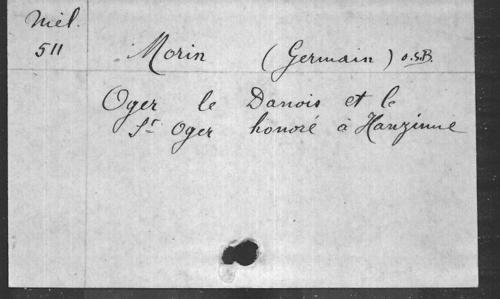 Mél.
511
Morin (Germain) O.S.B.
Oger le Danois et le
St Oger honoré à Hanzinne